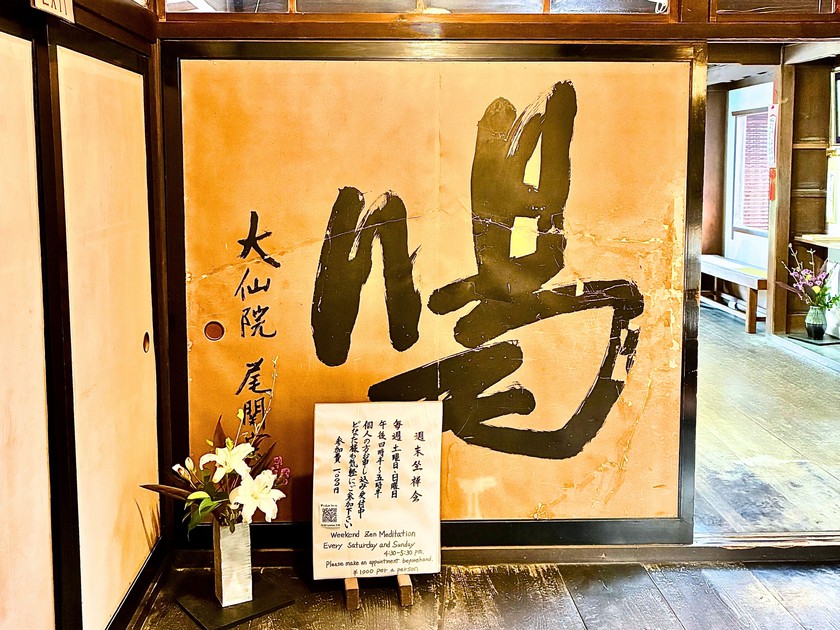 EXIT
喝
大仙院 尾関
週末坐禅会
毎週 土曜日・日曜日
午後四時半〜五時半
個人の方お申し込み受付中
どなた様も気軽にご参加下さい
参加費 一、〇〇〇円
Weekend Zen Meditation
Every Saturday and Sunday
4:30-5:30 pm.
Please make an appointment beforehand.
¥1000 per a person